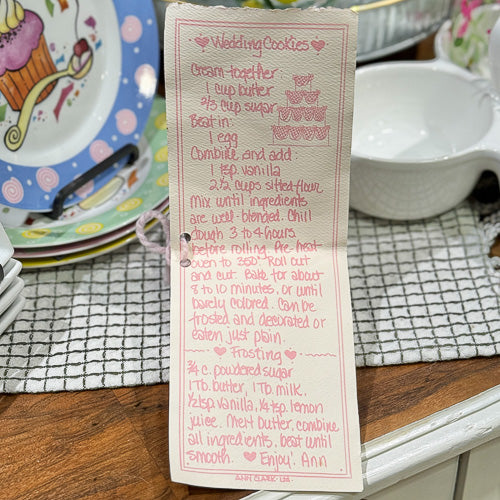 Wedding Cookies
Cream together:
1 cup butter
2/3 cup sugar
Beat in:
1 egg
Combine and add:
1 tsp. vanilla
2 1/2 cups sifted flour
Mix until ingredients
are well-blended. Chill
dough 3 to 4 hours
before rolling. Pre-heat
oven to 350°. Roll out
and cut. Bake for about
8 to 10 minutes, or until
barely colored. Can be
frosted and decorated or
eaten just plain.
Frosting
3/4 c. powdered sugar
1 Tb. butter, 1 Tb. milk,
1/2 tsp. vanilla, 1/4 tsp. lemon
juice. Melt butter, combine
all ingredients, beat until
smooth. Enjoy! Ann
ANN CLARK·USA